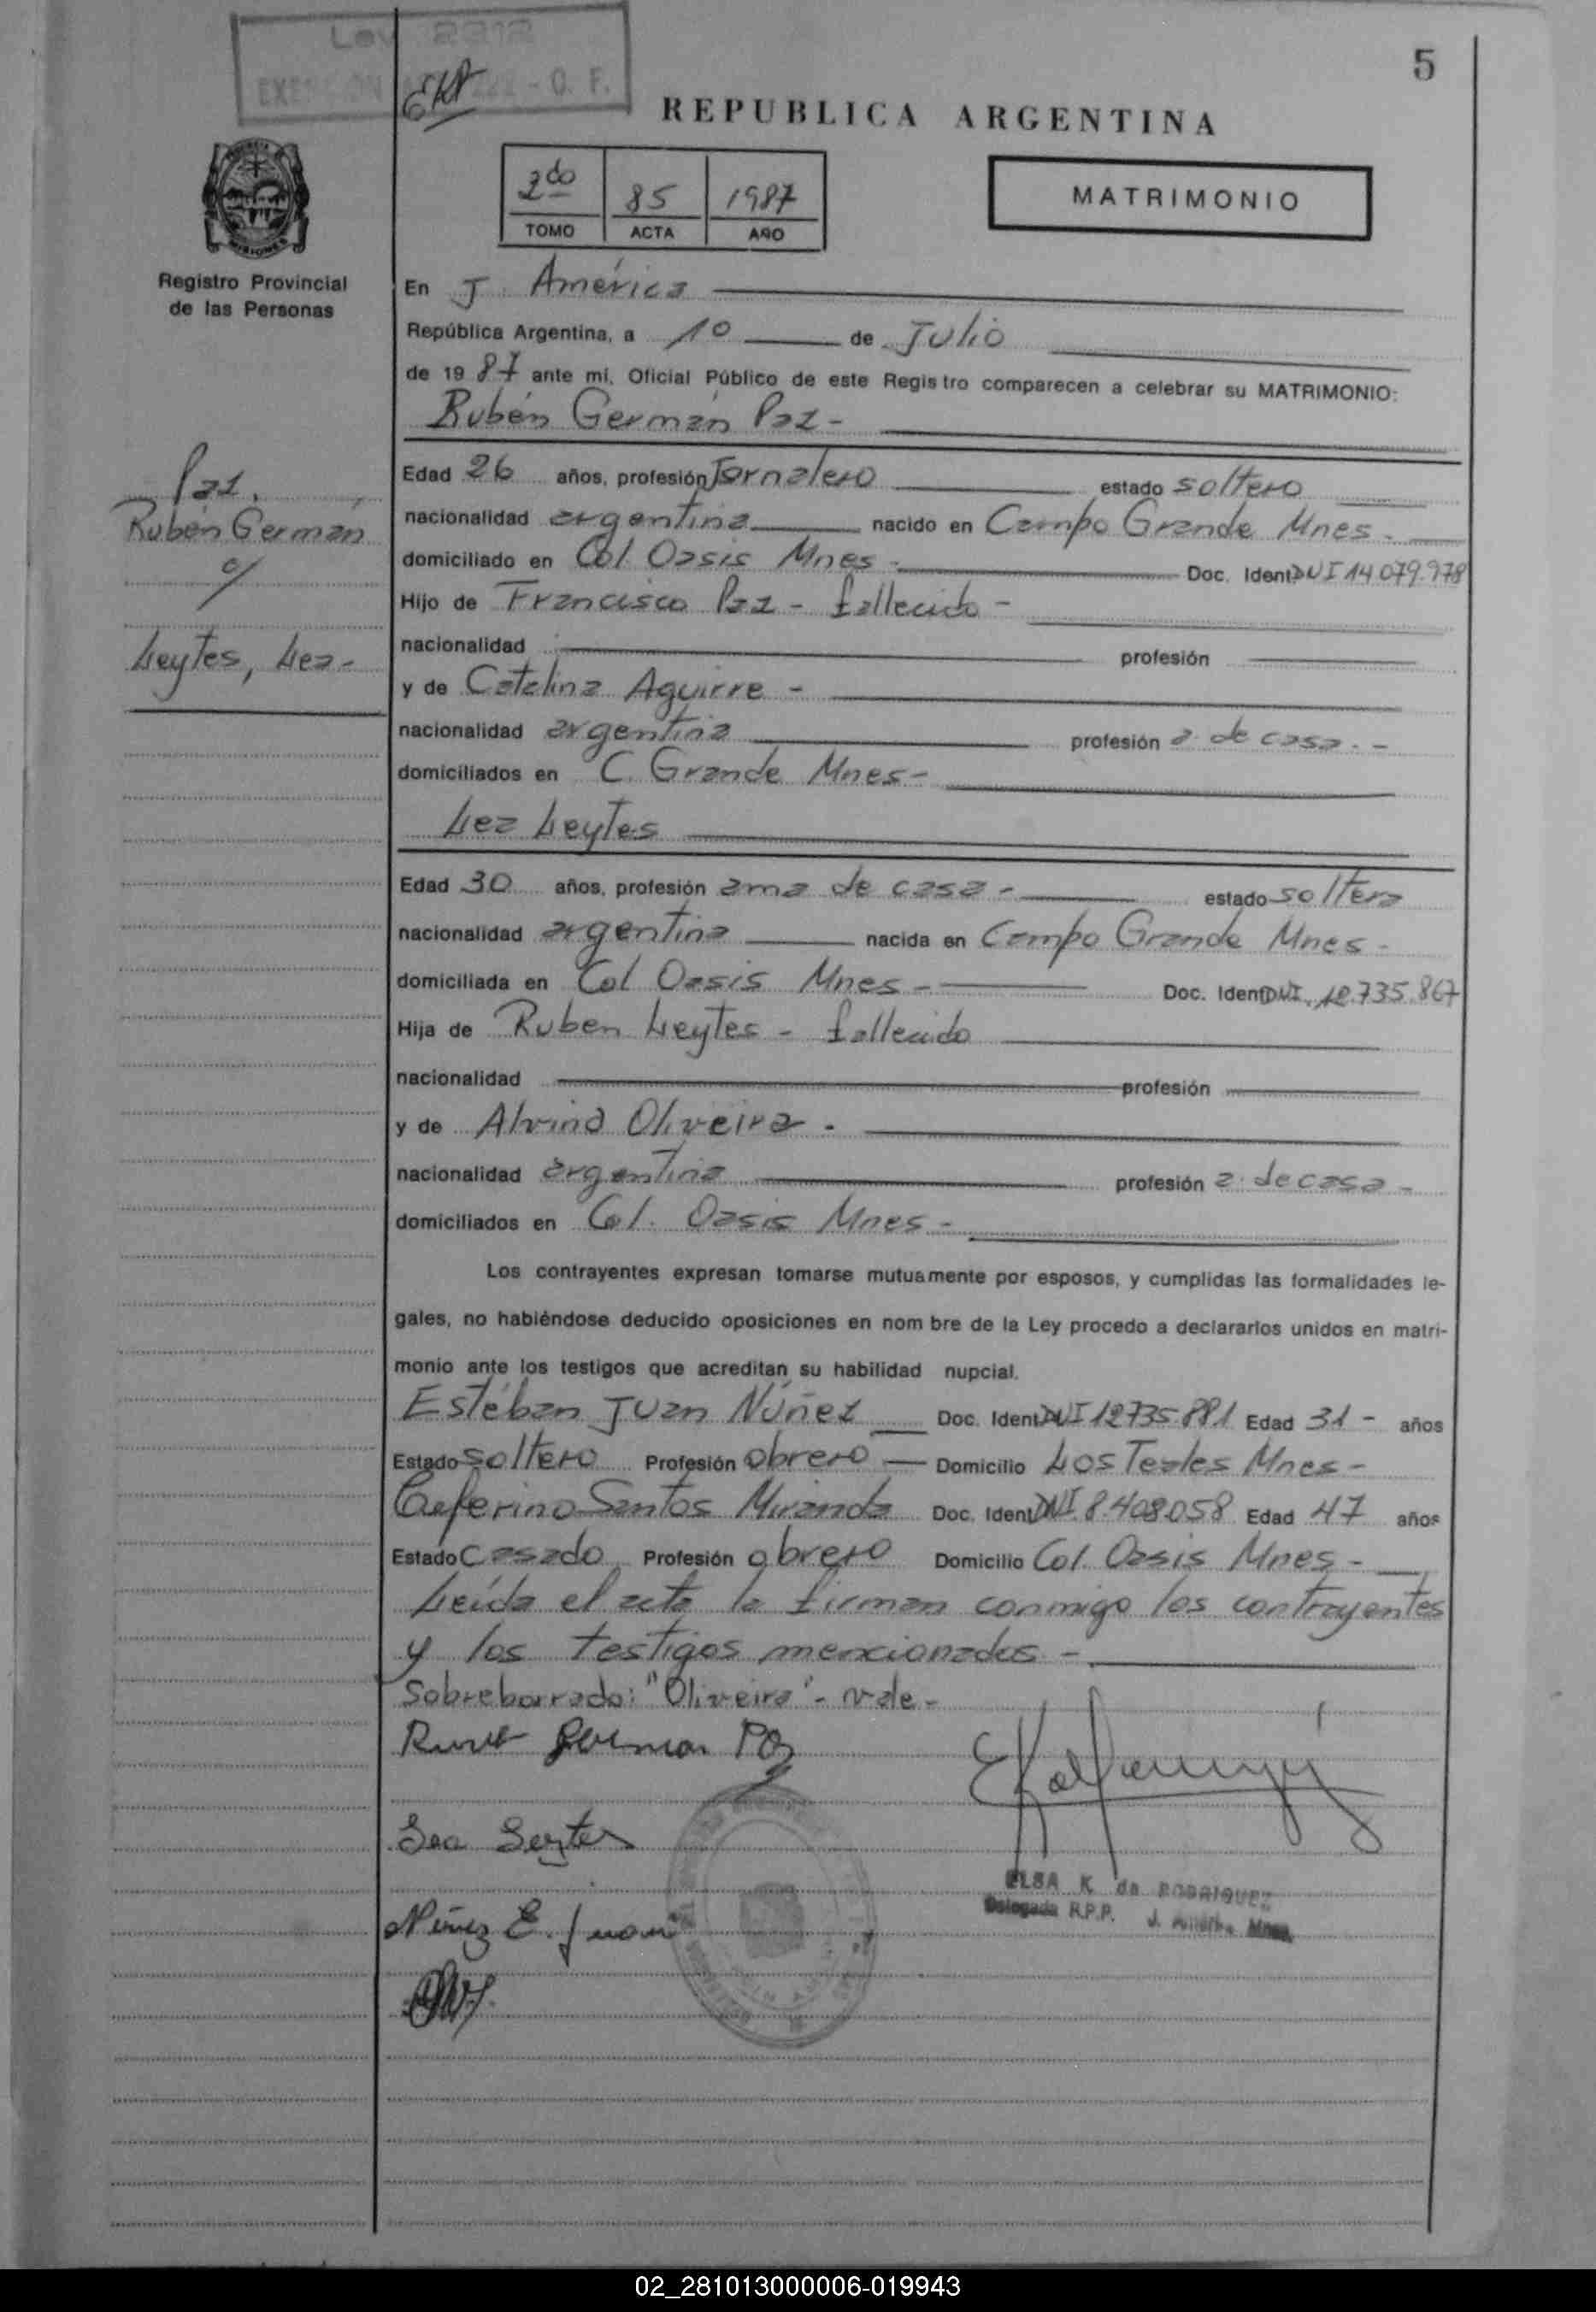 Ley 2312
EXENCION - O. F.
5
REPUBLICA ARGENTINA
2do 85 1987
TOMO ACTA AÑO
MATRIMONIO
Registro Provincial
de las Personas
En J. América
República Argentina, a 10 de Julio
de 1987 ante mí, Oficial Público de este Registro comparecen a celebrar su MATRIMONIO:
Rubén Germán Paz -
Paz,
Rubén Germán
c/
Leytes, Lea -
Edad 26 años, profesión Jornalero estado soltero
nacionalidad argentina nacido en Campo Grande Mnes -
domiciliado en Col Oasis Mnes - Doc. Ident DNI 14.079.978
Hijo de Francisco Paz - fallecido -
nacionalidad profesión
y de Catalina Aguirre -
nacionalidad argentina profesión a. de casa. -
domiciliados en C. Grande Mnes -
Lea Leytes
Edad 30 años, profesión ama de casa - estado soltera
nacionalidad argentina nacida en Campo Grande Mnes -
domiciliada en Col Oasis Mnes - Doc. Ident DNI 12.735.867
Hija de Ruben Leytes - fallecido
nacionalidad profesión
y de Alvina Oliveira -
nacionalidad argentina profesión a. de casa -
domiciliados en Col. Oasis Mnes -
Los contrayentes expresan tomarse mutuamente por esposos, y cumplidas las formalidades le-
gales, no habiéndose deducido oposiciones en nom bre de la Ley procedo a declararlos unidos en matri-
monio ante los testigos que acreditan su habilidad nupcial.
Estéban Juan Núñez Doc. Ident DNI 12735.881 Edad 31 - años
Estado soltero Profesión obrero Domicilio Los Teales Mnes -
Ceferino Santos Miranda Doc. Ident DNI 8.408.058 Edad 47 años
Estado Casado Profesión obrero Domicilio Col. Oasis Mnes -
Leída el acta la firman conmigo los contrayentes
y los testigos mencionados -
Sobreborrado: "Oliveira" - vale -
German Paz
Lea Leytes
ELSA K de RODRIGUEZ
Delegada R.P.P. J. América Mnes.
Núñez E. Juan
02_281013000006-019943